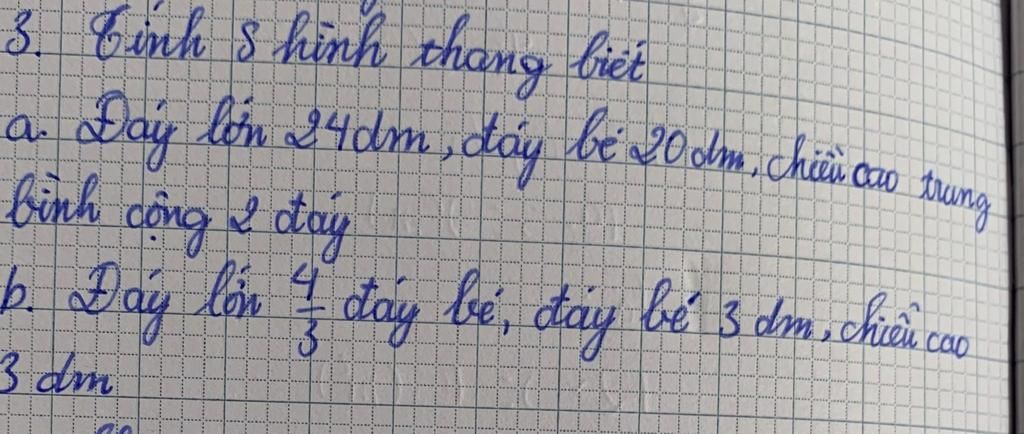 3. Tính S hình thang biết
a. Đáy lớn 24dm, đáy bé 20dm, chiều cao trung
bình cộng 2 đáy
b. Đáy lớn 4/3 đáy bé, đáy bé 3 dm, chiều cao
3 dm